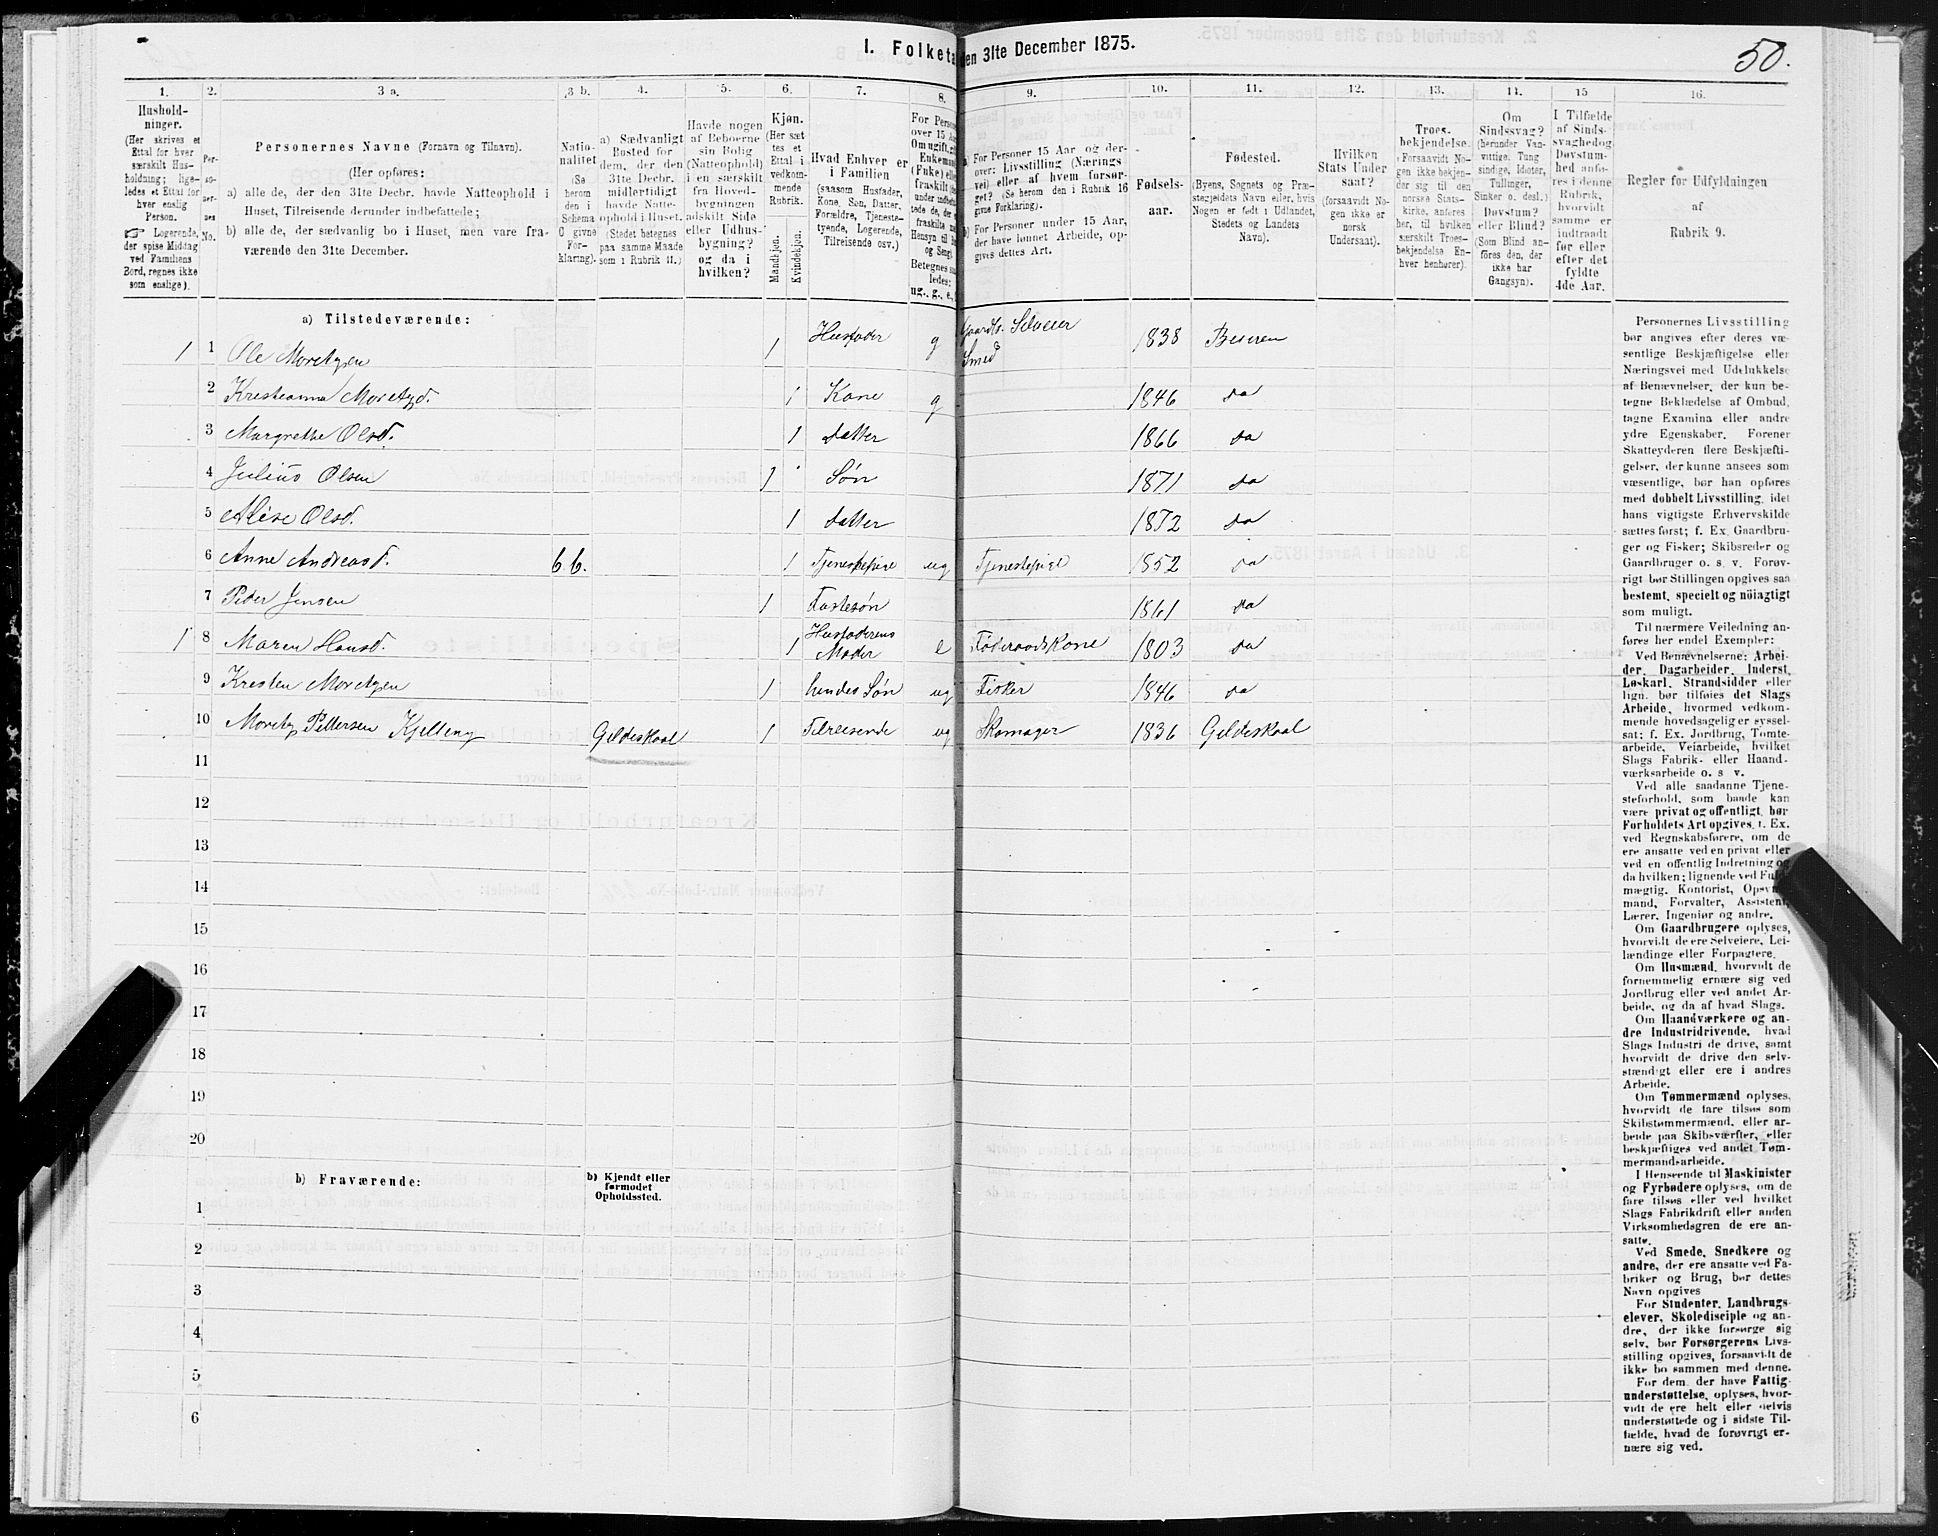 I. Folketa
den 31te December 1875.
50.
1.
Hushold-
ninger.
(Her skrives et
Ettal for hver
særskilt Hus-
holdning; lige-
ledes et Ettal for
hver enslig
Person.
☞ Logerende,
der spise Middag
ved Familiens
Bord, regnes ikke
som enslige).
2.
Per-
so-
ner-
nes
No.
3 a.
Personernes Navne (Fornavn og Tilnavn).
(Her opføres:
a) alle de, der den 31te Decbr. havde Natteophold i
Huset, Tilreisende derunder indbefattede;
b) alle de, der sædvanlig bo i Huset, men vare fra-
værende den 31te December.
3 b.
Natio-
nalitet
(Se
herom
den i
Schema
C givne
For-
klaring).
4.
a) Sædvanligt
Bosted for
dem, der den
31te Decbr.
midlertidigt
havde Natte-
ophold i Huset.
(Stedet betegnes
paa samme Maade
som i Rubrik 11.)
5.
Havde nogen
af Beboerne
sin Bolig
(Natteophold)
i en særskilt
fra Hoved-
bygningen
adskilt Side-
eller Udhus-
bygning?
og da i
hvilken?
6.
Kjøn.
(Her sæt-
tes et
Ettal i
vedkom-
mende
Rubrik.
Mandkjøn.
Kvindekjøn.
7.
Hvad Enhver er
i Familien
(saasom Husfader,
Kone, Søn, Datter,
Forældre, Tjeneste-
tyende, Logerende,
Tilreisende osv.)
8.
For Person
over 15 Aa
Om ugift, g
Enkeman
(Fuke) elle
fraskilt
9.
a) For Personer 15 Aar og der-
over: Livsstilling (Nærings-
vei) eller af hvem forsør-
get? (Se herom den i Rubrik 16
givne Forklaring).
b) For Personer under 15 Aar,
der have lønnet Arbeide, op-
gives dettes Art.
10.
Fødsels-
aar.
11.
Fødested.
(Byens, Sognets og Præ-
stegjeldets Navn eller, hvis
Nogen er født i Udlandet,
Stedets og Landets
Navn).
12.
Hvilken
Stats Under-
saat?
(forsaavidt No-
gen ikke er
norsk
Undersaat).
13.
Troes-
bekjendelse.
(Forsaavidt No-
gen ikke bekjen-
der sig til den
norske Stats-
kirke, anføres
her, til hvilken
særskilt Troes-
bekjendelse En-
hver henhører).
14.
Om
Sindssvag?
(herunder Van-
vittige, Tung-
sindige, Idioter,
Tullinger,
Sinker o. desl.)
Døvstum?
eller Blind?
(Som Blind an-
føres den, der
ikke har
Gangsyn).
15
I Tilfælde
af Sinds-
svaghed og
Døvstum-
hed anfø-
res i denne
Rubrik,
hvorvidt
samme er
indtraadt
før eller
efter det
fyldte
4de Aar.
16.
Regler for Udfyldningen
af
Rubrik 9.
a) Tilstedeværende:
1 1 Ole Moretzen 1 Husfader g Gaardb. Selveier Smed 1838 Beieren
2 Kresteanna Moretzd. 1 Kone g 1846 da
3 Margrethe Olsd. 1 datter 1866 da
4 Julius Olsen 1 Søn 1871 da
5 Alise Olsd. 1 datter 1872 da
6 Anne Andreasd. b.b. 1 Tjenestepige ug Tjenestepige 1852 da
7 Peder Jensen 1 Fostesøn 1861 da
1 8 Maren Hansd. 1 Husfaderens Moder e Føderaadskone 1803 da
9 Kresten Moretzen 1 hendes Søn ug Fisker 1846 da
10 Moretz Pettersen Kjelleng Gildeskaal 1 Tilreisende ug Skomager 1836 Gildeskaal
11
12
13
14
15
16
17
18
19
20
b) Fraværende:
b) Kjendt eller
formodet
Opholdssted.
1
2
3
4
5
6
Personernes Livsstilling
bør angives efter deres væ-
sentlige Beskjæftigelse eller
Næringsvei med Udelukkelse
af Benævnelser, der kun be-
tegne Beklædelse af Ombud,
tagne Examina eller andre
ydre Egenskaber. Forener
Skatteyderen flere Beskjæfti-
gelser, der kunne ansees som
væsentlige, bør han opføres
med dobbelt Livsstilling, idet
hans vigtigste Erhvervskilde
sættes først; f. Ex. Gaardbru-
ger og Fisker; Skibsreder og
Gaardbruger o. s. v. Forøv-
rigt bør Stillingen opgives saa
bestemt, specielt og nøiagtigt
som muligt.
Til nærmere Veiledning an-
føres her endel Exempler:
Ved Benævnelserne: Arbei-
der, Dagarbeider, Inderst,
Løskarl, Strandsidder eller
lign. bør tilføies det Slags
Arbeide, hvormed vedkom-
mende hovedsagelig er syssel-
sat; f. Ex. Jordbrug, Tomte-
arbeide, Veiarbeide, hvilket
Slags Fabrik- eller Haand-
værksarbeide o. s v.
Ved alle saadanne Tjene-
steforhold, som baade kan
være privat og offentligt, bør
Forholdets Art opgives, f. Ex.
ved Regnskabsførere, om de
ere ansatte ved en privat eller
ved en offentlig Indretning og
da hvilken; lignende ved Fuld-
mægtig, Kontorist, Opsyns-
mand, Forvalter, Assistent,
Lærer, Ingeniør og andre.
Om Gaardbrugere oplyses,
hvorvidt de ere Selveiere, Lei-
lændinge eller Forpagtere.
Om Husmænd, hvorvidt de
fornemmelig ernære sig ved
Jordbrug eller ved andet Ar-
beide, og da af hvad Slags.
Om Haandværkere og an-
dre Industridrivende, hvad
Slags Industri de drive, samt
hvorvidt de drive den selv-
stændigt eller ere i andres
Arbeide.
Om Tømmermænd oplyses,
hvorvidt de fare tilsøs som
Skibstømmermænd, eller ar-
beide paa Skibsværfter, eller
beskjæftiges ved andet Tøm-
mermandsarbeide.
I Henseende til Maskinister
og Fyrbødere oplyses, om de
fare tilsøs eller ved hvilket
Slags Fabrikdrift eller anden
Virksomhedsgren de ere an-
satte.
Ved Smede, Snedkere og
andre, der ere ansatte ved Fa-
briker og Brug, bør dettes
Navn opgives
For Studenter, Landbrugs-
elever, Skoledisciple og an-
dre, der ikke forsørge sig
selv, bør Forsørgerens Livs-
stilling opgives, forsaavidt de
ikke bo sammen med denne.
For dem, der have Fattig-
understøttelse, oplyses, hvor-
vidt de ere helt eller delvis
understøttede og i sidste Til-
fælde, hvad de forøvrigt er-
nære sig ved.